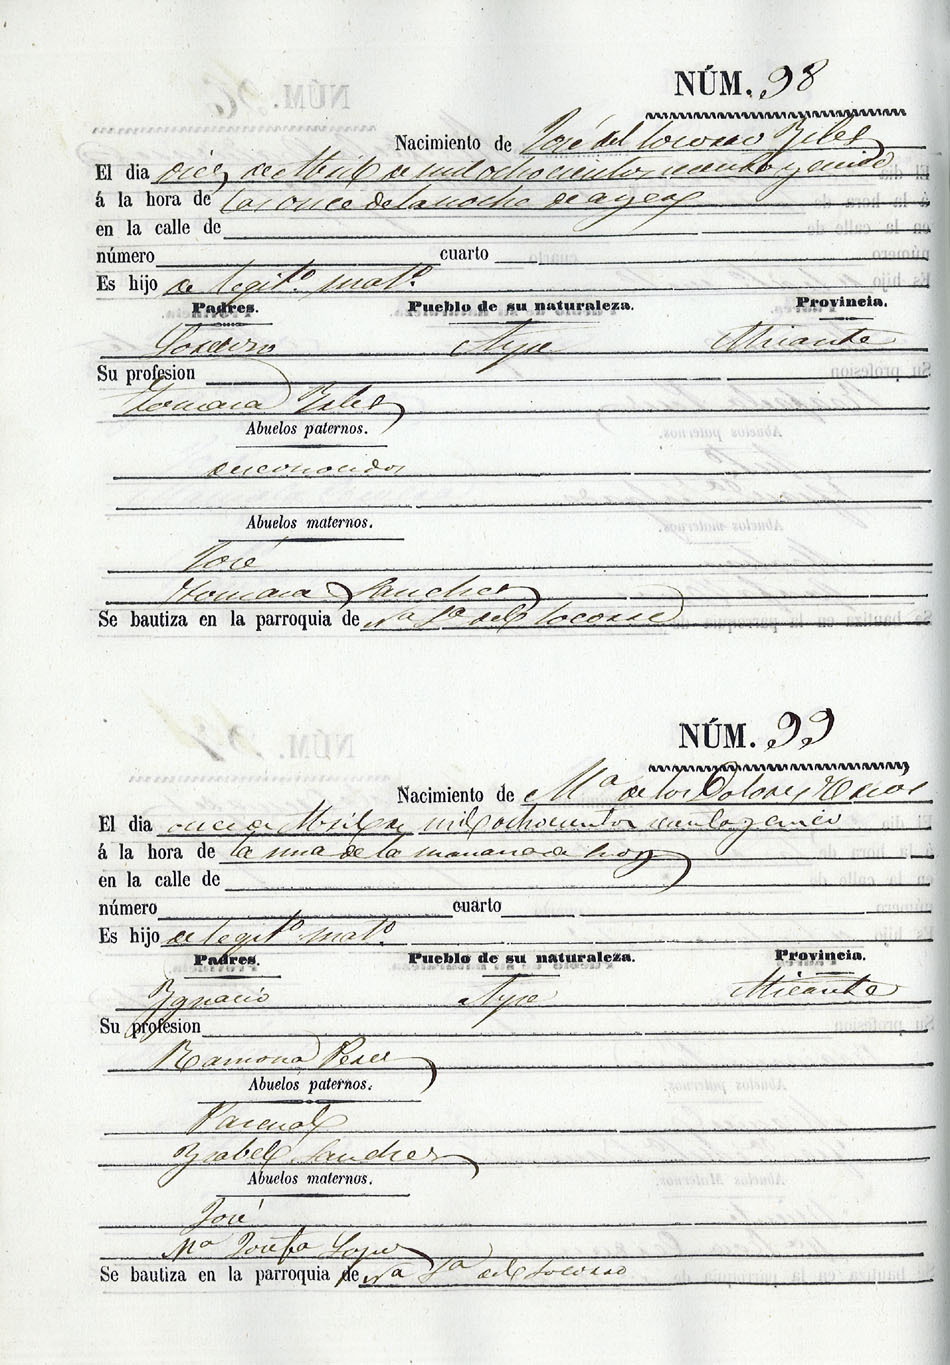 NÚM. 98
Nacimiento de José del Socorro Yeles
El dia diez de Abril de mil ochocientos cuarenta y cinco
á la hora de las once de la noche de ayer
en la calle de
número cuarto
Es hijo de legit.º mat.º
Padres. Pueblo de su naturaleza. Provincia.
Aspe Alicante
Su profesion
Tomasa Yeles
Abuelos paternos.
desconocidos
Abuelos maternos.
José
Tomasa Sanchez
Se bautiza en la parroquia de Nª Sª del Socorro
NÚM. 99
Nacimiento de Mª de los Dolores
El dia once de Abril de mil ochocientos cuarenta y cinco
á la hora de la una de la mañana de hoy
en la calle de
número cuarto
Es hijo de legit.º mat.º
Padres. Pueblo de su naturaleza. Provincia.
Ygnacio Aspe Alicante
Su profesion
Ramona Perez
Abuelos paternos.
Pascual
Ysabel Sanchez
Abuelos maternos.
José
Mª Josefa Lopez
Se bautiza en la parroquia de Nª Sª del Socorro